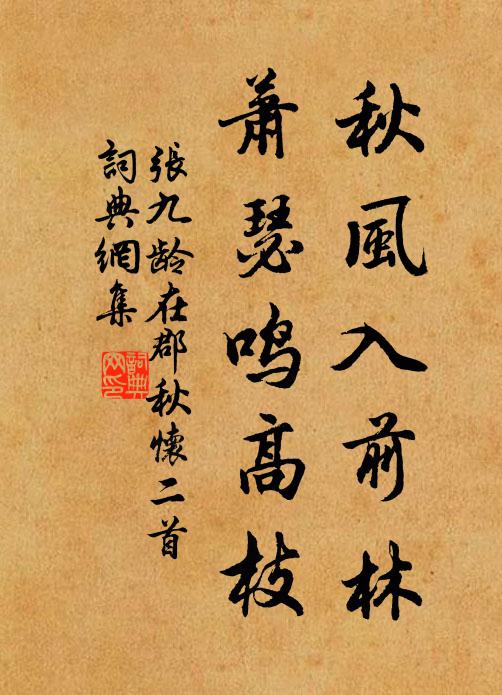 秋風入前林
蕭瑟鳴高枝
張九龄在郡秋懷二首
詞典網集
詞典網印